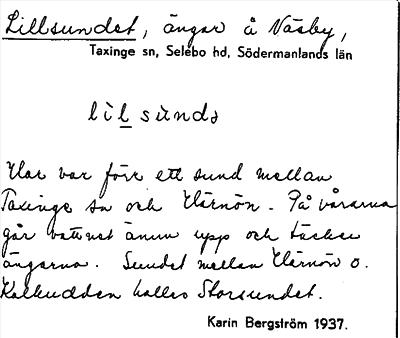 Lillsundet, ängar å Näsby,
Taxinge sn, Selebo hd, Södermanlands län
lìl sùndə
Här var förr ett sund mellan
Taxinge sn och Härnön. På vårarna
går vattnet ännu upp och täcker
ängarna. Sundet mellan Härnön o.
Kalkudden kallas Storsundet.
Karin Bergström 1937.